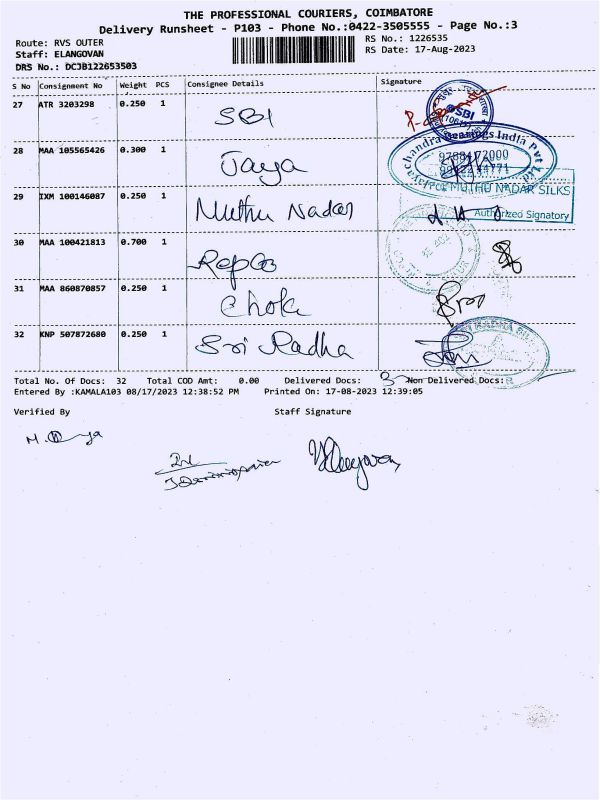 THE PROFESSIONAL COURIERS, COIMBATORE
Delivery Runsheet - P103 - Phone No.:0422-3505555 - Page No.:3
Route: RVS OUTER
Staff: ELANGOVAN
DRS No.: DCJB122653503
RS No.: 1226535
RS Date: 17-Aug-2023
S No Consignment No Weight PCS Consignee Details Signature
27 ATR 3203298 0.250 1 SBI
SBI
28 MAA 105565426 0.300 1 Jaya
chandra Bearings India Pvt
29 IXM 100146087 0.250 1 Muthu Nadar
MUTHU NADAR SILKS
Authorized Signatory
30 MAA 100421813 0.700 1 Repco
31 MAA 860870857 0.250 1 Chola
32 KNP 507872680 0.250 1 Sri Radha
Total No. Of Docs: 32 Total COD Amt: 0.00 Delivered Docs: Non Delivered Docs:
Entered By :KAMALA103 08/17/2023 12:38:52 PM Printed On: 17-08-2023 12:39:05
Verified By Staff Signature